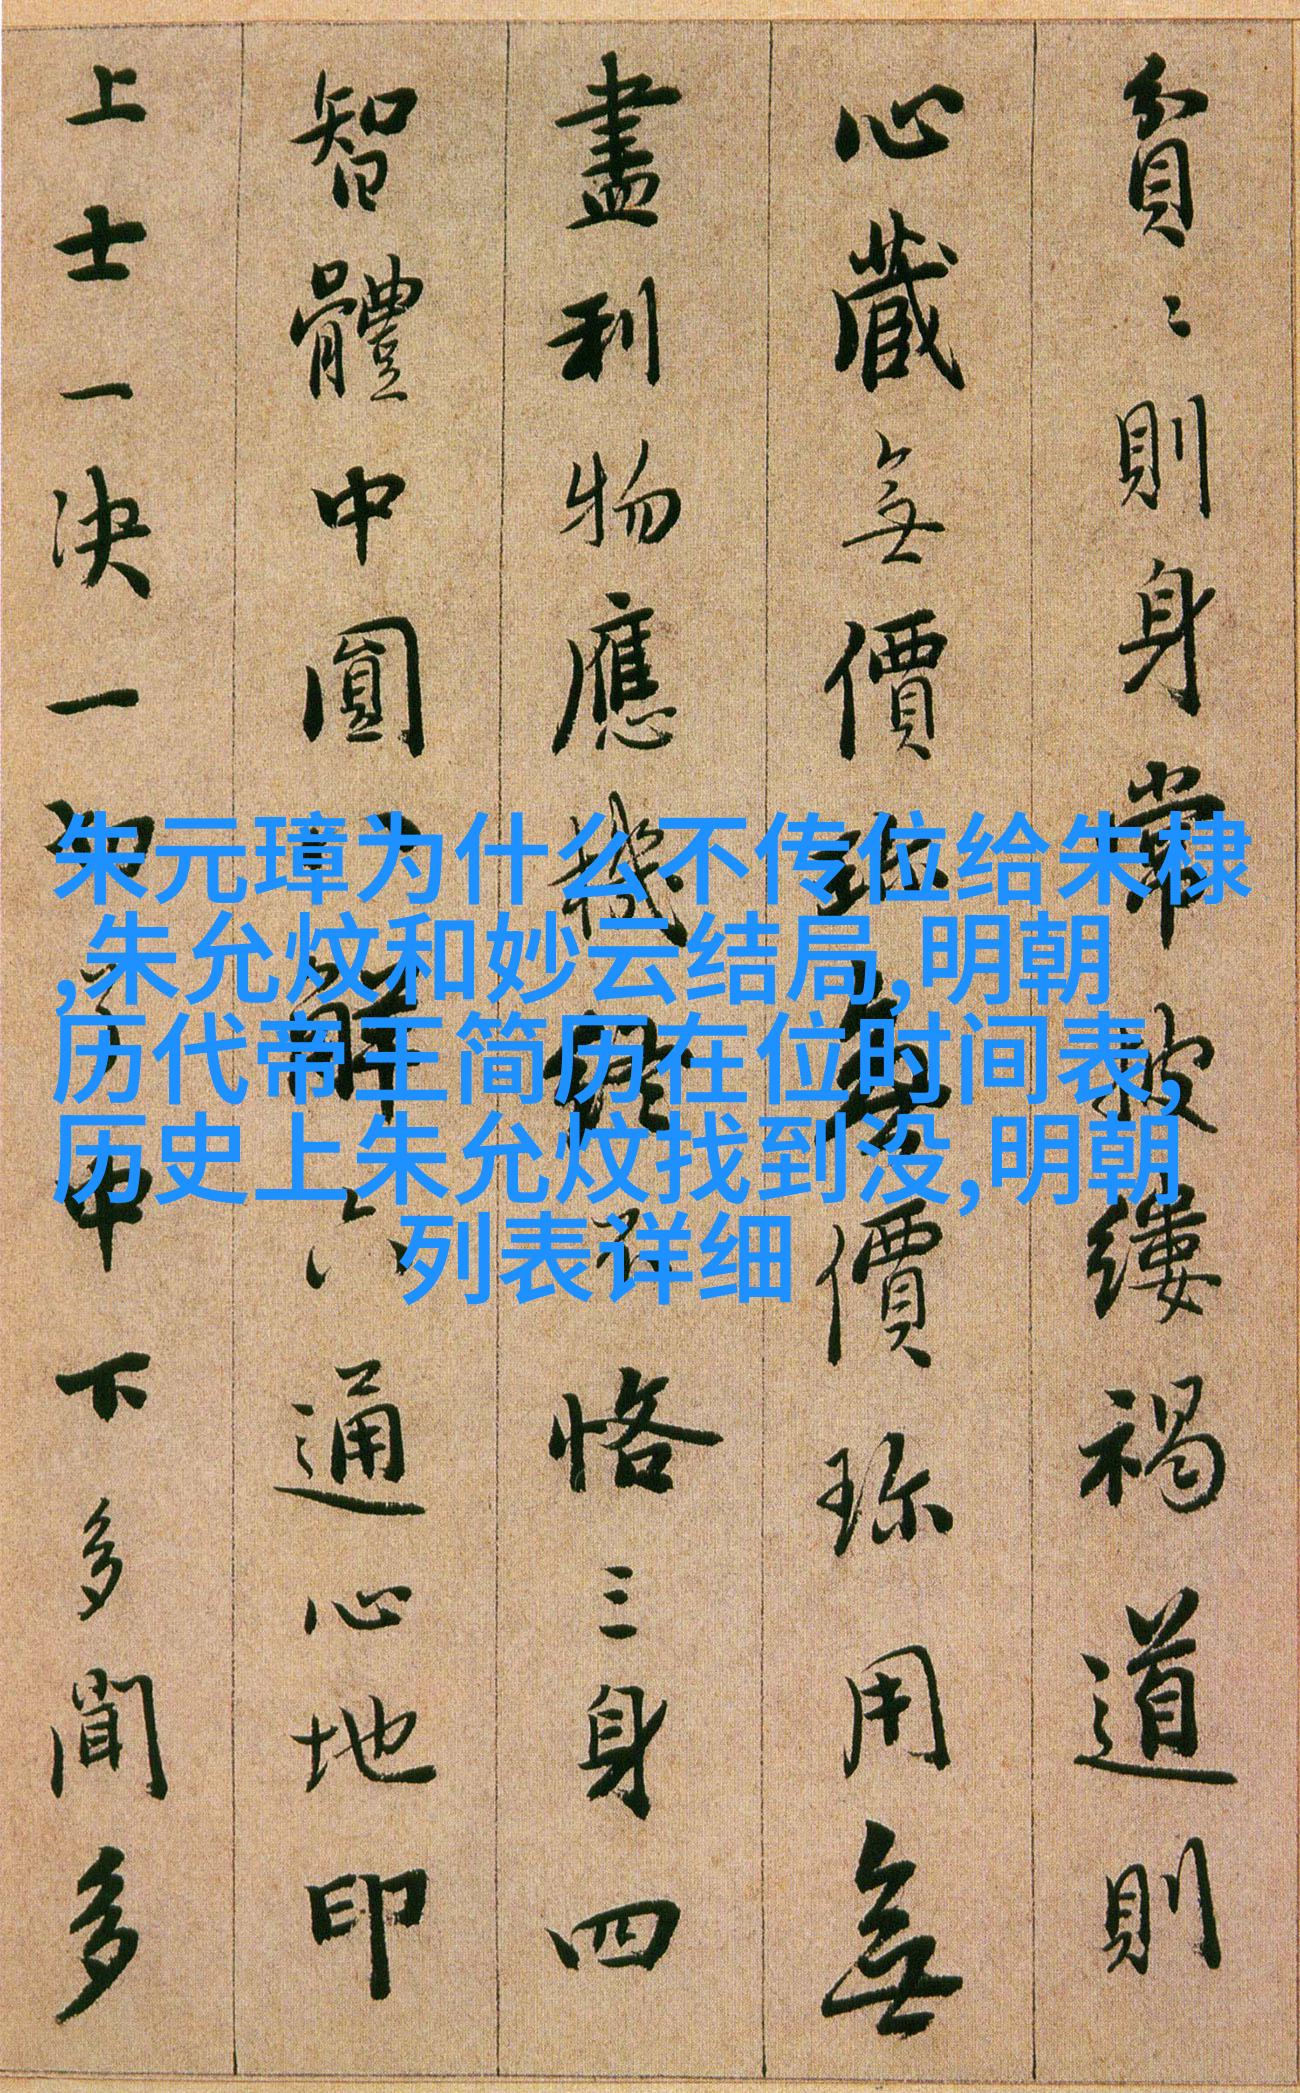 貧〻〻則身常披縷褐道則
心藏無價珎無價珎用無
盡利物應機不恪三身四
智體中圓八解六通心地印
上士一決一切了中下多聞多
朱元璋为什么不传位给朱棣
,朱允炆和妙云结局,明朝
历代帝王简历在位时间表,
历史上朱允炆找到没,明朝
列表详细